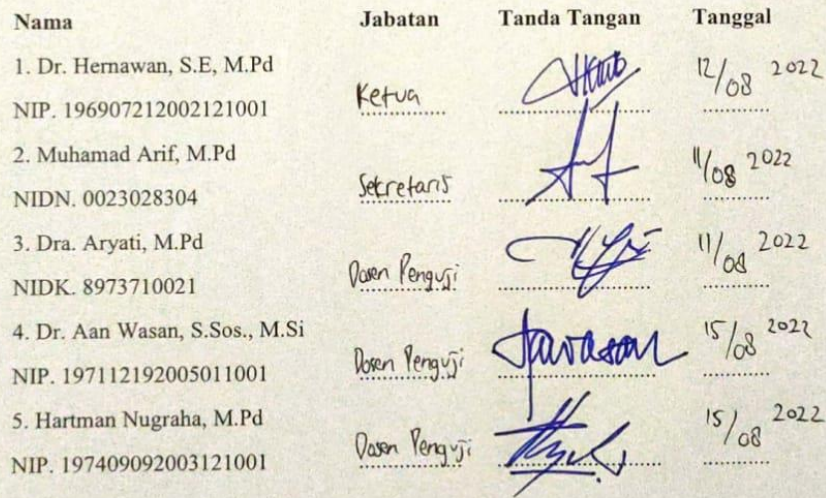 Nama Jabatan Tanda Tangan Tanggal
1. Dr. Hernawan, S.E, M.Pd
NIP. 196907212002121001 Ketua 12/08 2022
2. Muhamad Arif, M.Pd
NIDN. 0023028304 Sekretaris 11/08 2022
3. Dra. Aryati, M.Pd
NIDK. 8973710021 Dosen Penguji 11/08 2022
4. Dr. Aan Wasan, S.Sos., M.Si
NIP. 197112192005011001 Dosen Penguji 15/08 2022
5. Hartman Nugraha, M.Pd
NIP. 197409092003121001 Dosen Penguji 15/08 2022